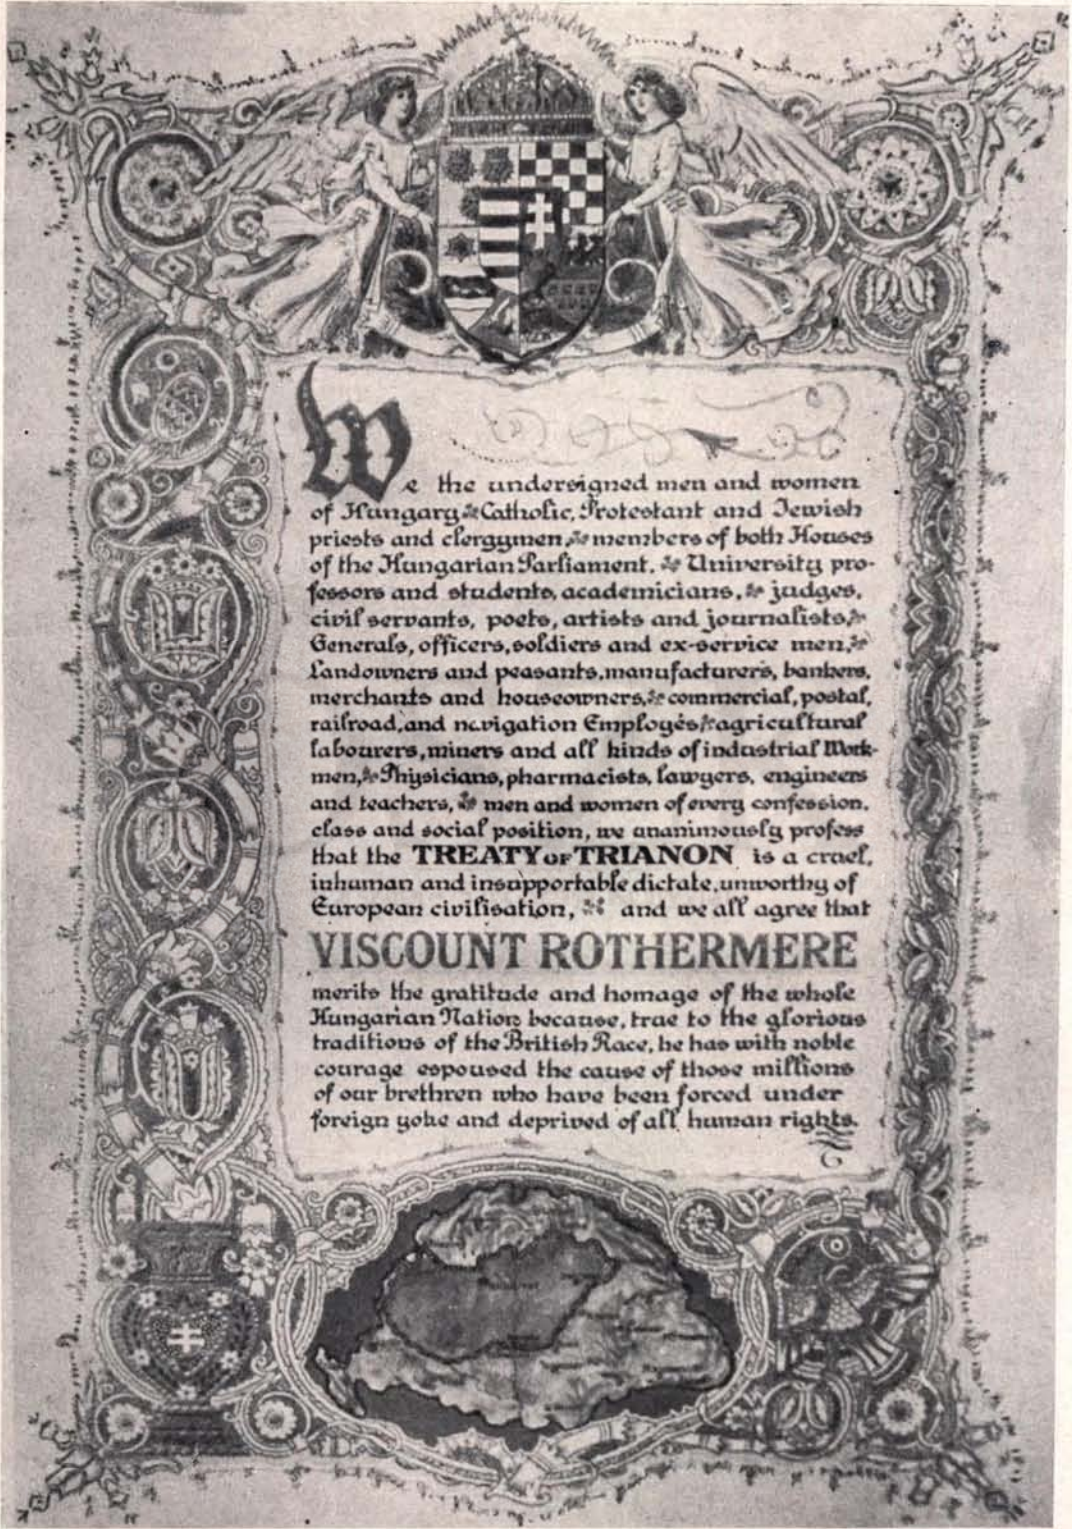 We the undersigned men and women
of Hungary Catholic, Protestant and Jewish
priests and clergymen, members of both Houses
of the Hungarian Parliament, University pro-
fessors and students, academicians, judges,
civil servants, poets, artists and journalists,
Generals, officers, soldiers and ex-service men,
Landowners and peasants, manufacturers, bankers,
merchants and houseowners, commercial, postal,
railroad, and navigation Employés, agricultural
labourers, miners and all kinds of industrial Work-
men, Physicians, pharmacists, lawyers, engineers
and teachers, men and women of every confession,
class and social position, we unanimously profess
that the TREATY OF TRIANON is a cruel,
inhuman and insupportable dictate, unworthy of
European civilisation, and we all agree that
VISCOUNT ROTHERMERE
merits the gratitude and homage of the whole
Hungarian Nation because, true to the glorious
traditions of the British Race, he has with noble
courage espoused the cause of those millions
of our brethren who have been forced under
foreign yoke and deprived of all human rights.